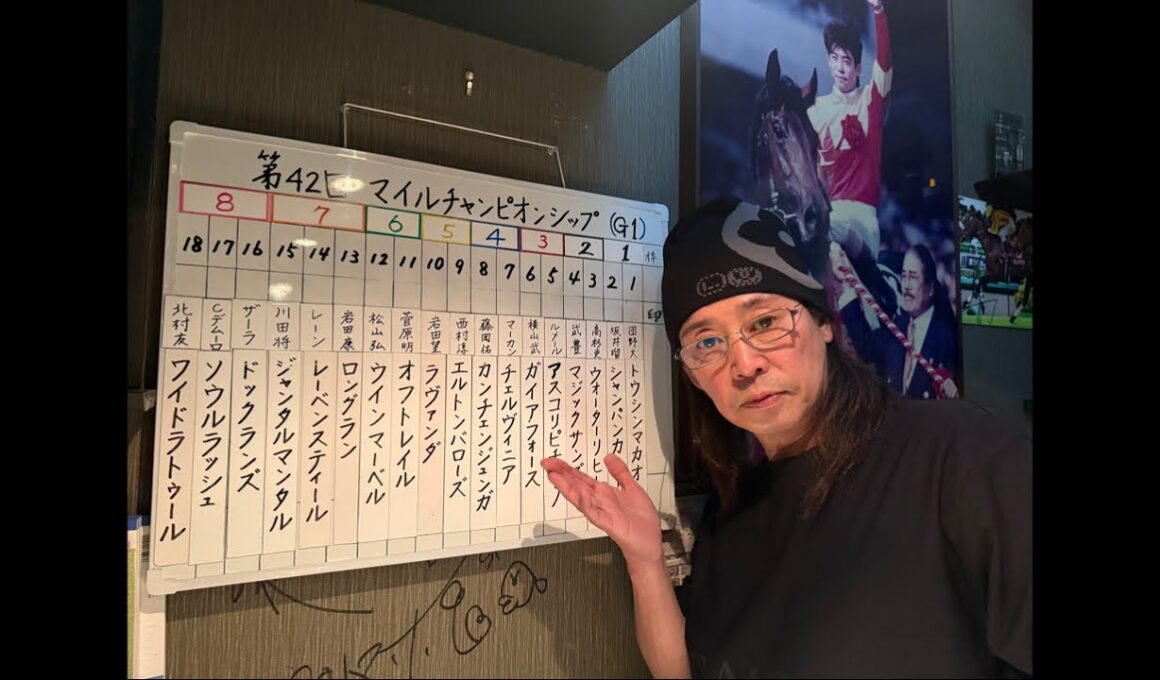 第42回 マイルチャンピオンシップ (G1)
8 7 6 5 4 3 2 1 枠
18 17 16 15 14 13 12 11 10 9 8 7 6 5 4 3 2 1
印
団野大 トウシンマカオ
坂井瑠 シャンパンカ
高杉吏 ウォーターリヒ
武豊 マジックサンズ
ルメール アスコリピチ
横山武 ガイアフォース
マーカン チェルヴィニア
藤岡佑 カンチェンジュンガ
西村淳 エルトンバローズ
岩田望 ラヴァンダ
菅原明 オフトレイル
松山弘 ウインマーベル
岩田康 ロングラン
レーン レーベンスティール
川田将 ジャンタルマンタル
ザーラ ドックランズ
Cデムーロ ソウルラッシュ
北村友 ワイドラトゥール